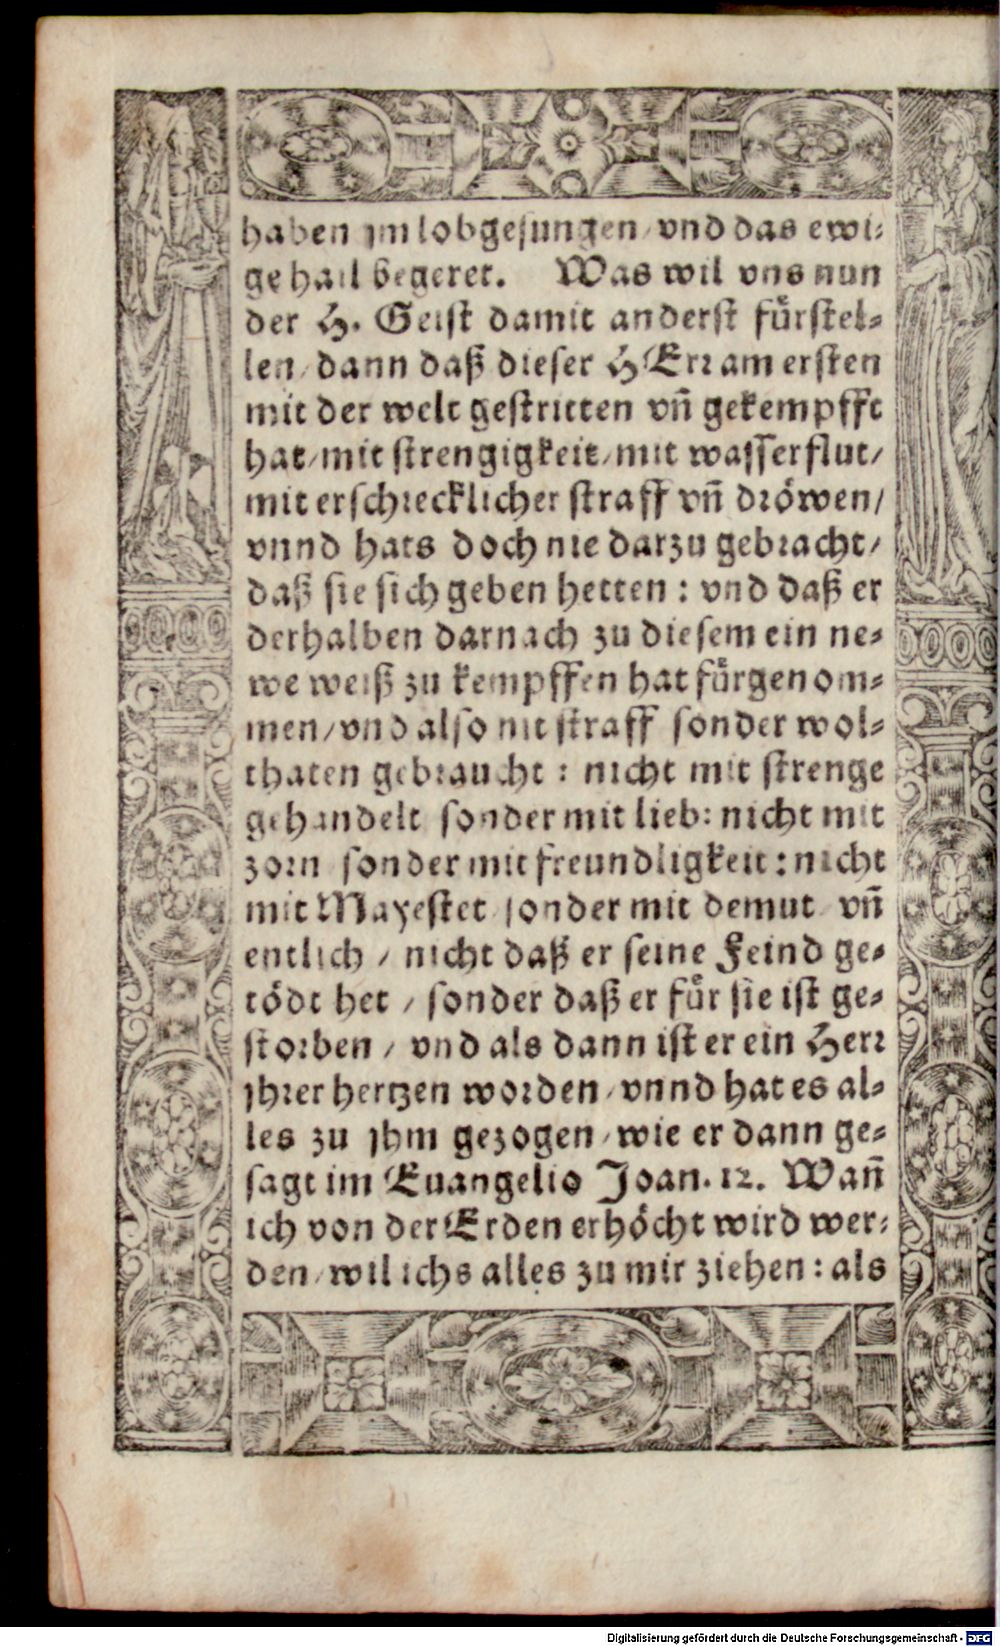 haben jm lobgesungen / vnd das ewi-
ge hail begeret. Was wil vns nun
der H. Geist damit anderst fürstel-
len / dann daß dieser HErr am ersten
mit der welt gestritten vñ gekempfft
hat / mit strengigkeit / mit wasserflut /
mit erschrecklicher straff vñ dröwen /
vnnd hats doch nie darzu gebracht /
daß sie sich geben hetten : vnd daß er
derhalben darnach zu diesem ein ne-
we weiß zu kempffen hat fürgenom-
men / vnd also nit straff sonder wol-
thaten gebraucht : nicht mit strenge
gehandelt sonder mit lieb : nicht mit
zorn sonder mit freundligkeit : nicht
mit Mayestet sonder mit demut vñ
entlich / nicht daß er seine Feind ge-
tödt het / sonder daß er für sie ist ge-
storben / vnd als dann ist er ein Herr
jhrer hertzen worden / vnnd hat es al-
les zu jhm gezogen / wie er dann ge-
sagt im Euangelio Joan. 12. Wañ
ich von der Erden erhöcht wird wer-
den / wil ichs alles zu mir ziehen : als
Digitalisierung gefördert durch die Deutsche Forschungsgemeinschaft - DFG